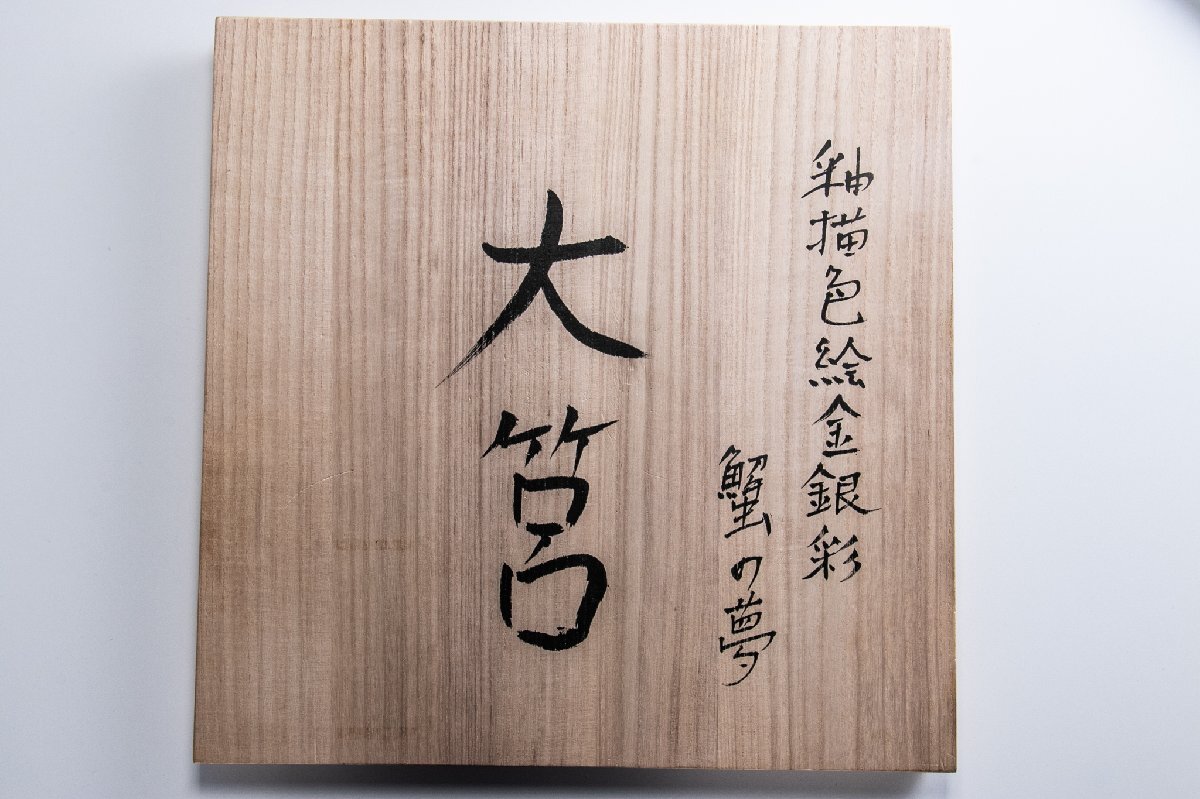 釉描色絵金銀彩
蟹の夢
大筥